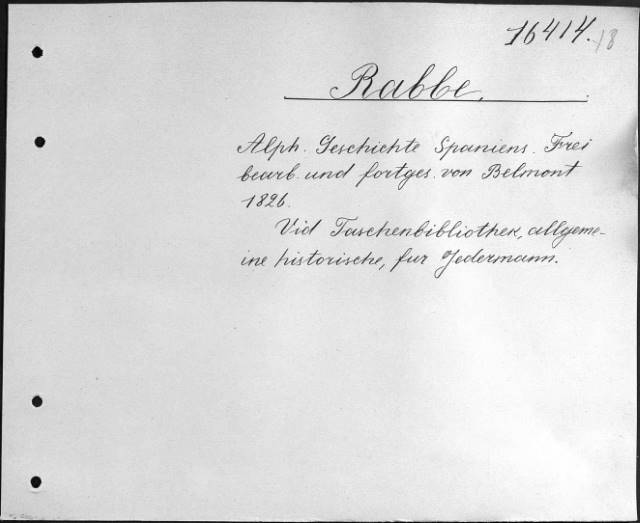 16414.
18
Rabbe.
Alph. Geschichte Spaniens. Frei
bearb. und fortges. von Belmont
1826.
Vid Taschenbibliothek, allgeme-
ine historische, fur Jedermann.